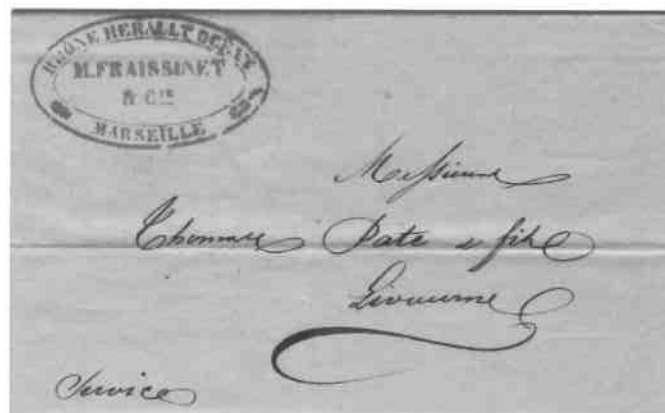 RHÔNE HERAULT OCÉAN
M. FRAISSINET
& Cie
MARSEILLE
Messieurs
Thomas Pate & fils
Livourne
Service